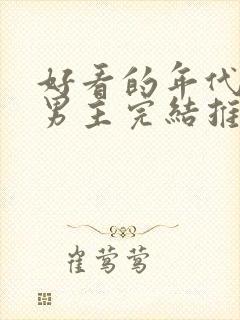 好看的年代
男主完結推
崔莺莺